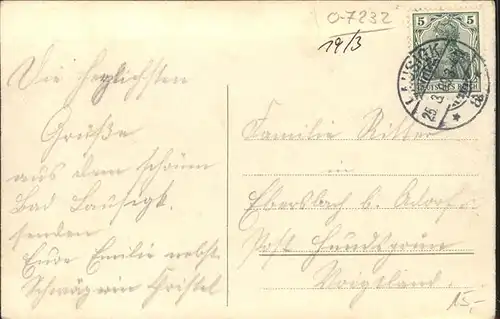 O-7232
19/3
5 5
DEUTSCHES REICH
LAUSIGK
25. 3.
Die herzlichsten
Grüße
aus dem schönen
Bad Lausigk.
senden
Eure Emilie nebst
Schwägerin Christel
Familie Ritter
in
Ebersbach b. Adorf.
Post
Voigtland.
15,-